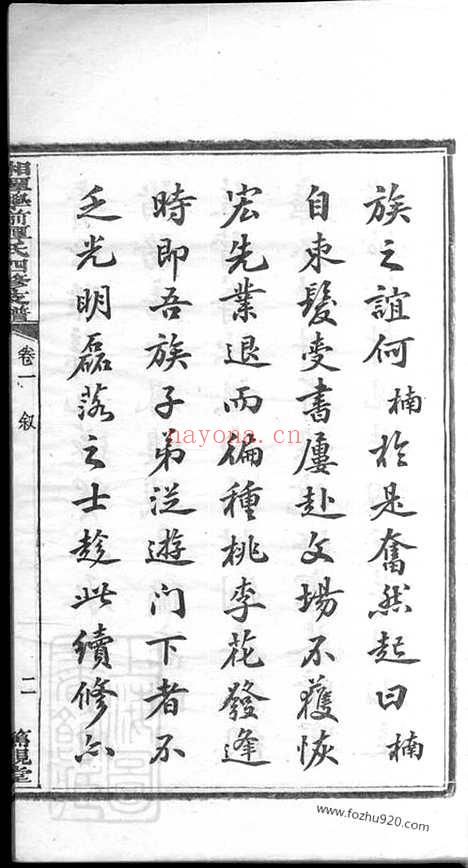 族之誼何楠於是奮然起曰楠
自束髮受書屢赴文場不獲恢
宏先業退而徧種桃李花發逢
時即吾族子弟從遊门下者不
乏光明磊落之士趁此續修亦
卷一 叙
二
hayona.cn
www.fozhu920.com